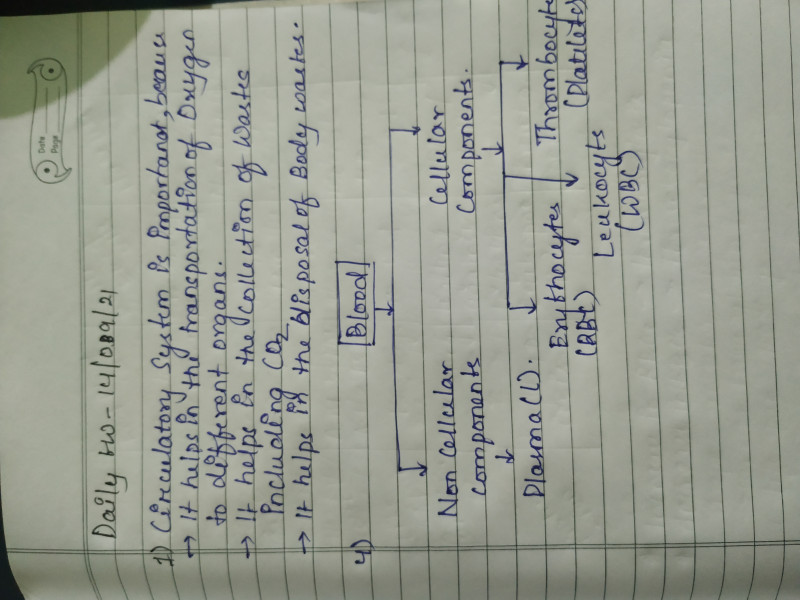 Date
Page
Daily HW - 14/089/21
1) Circulatory System is Importanat, because
→ It helps in the transportation of Oxygen
to different organs.
→ It helps in the Collection of Wastes
Including CO2
→ It helps in the Disposal of Body wastes.
4)
Blood
Non Cellular
components
Cellular
Components.
Plasma(L).
Erythocytes
(RBC)
Leukocyts
(WBC)
Thrombocyte
(Platilets)